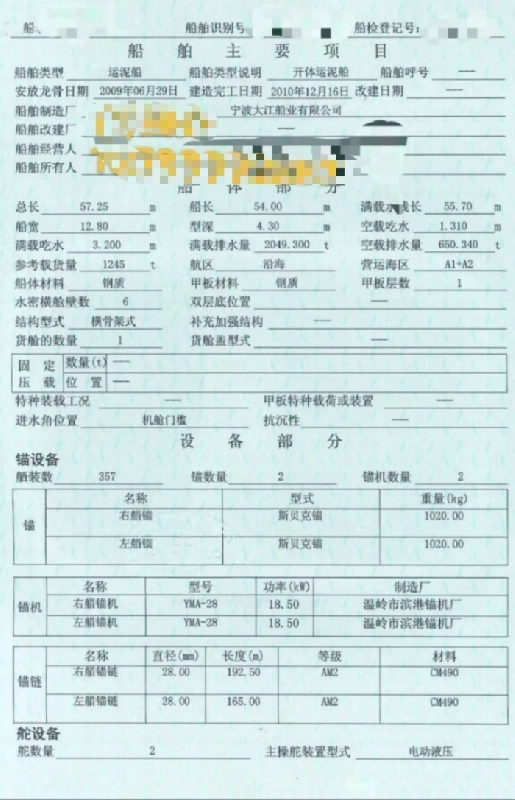 船 船舶识别号 船检登记号:
船 舶 主 要 项 目
船舶类型 运泥船 船舶类型说明 开体运泥船 船舶呼号 ——
安放龙骨日期 2009年06月29日 建造完工日期 2010年12月16日 改建日期 ——
船舶制造厂 宁波大江船业有限公司
船舶改建厂 ——
船舶经营人
船舶所有人
船 体 部 分
总长 57.25 m 船长 54.00 m 满载水线长 55.70 m
船宽 12.80 m 型深 4.30 m 空载吃水 1.310 m
满载吃水 3.200 m 满载排水量 2049.300 t 空载排水量 650.340 t
参考载货量 1245 t 航区 沿海 营运海区 A1+A2
船体材料 钢质 甲板材料 钢质 甲板层数 1
水密横舱壁数 6 双层底位置 ——
结构型式 横骨架式 补充加强结构 ——
货舱的数量 1 货舱盖型式 ——
固 定 数量(t) ——
压 载 位 置 ——
特种装载工况 —— 甲板特种载荷或装置 ——
进水角位置 机舱门槛 抗沉性 ——
设 备 部 分
锚设备
舾装数 357 锚数量 2 锚机数量 2
锚 名称 型式 重量(kg)
右艏锚 斯贝克锚 1020.00
左艏锚 斯贝克锚 1020.00
锚机 名称 型号 功率(kW) 制造厂
右艏锚机 YMA-28 18.50 温岭市滨港锚机厂
左艏锚机 YMA-28 18.50 温岭市滨港锚机厂
锚链 名称 直径(mm) 长度(m) 等级 材料
右艏锚链 28.00 192.50 AM2 CM490
左艏锚链 28.00 165.00 AM2 CM490
舵设备
舵数量 2 主操舵装置型式 电动液压